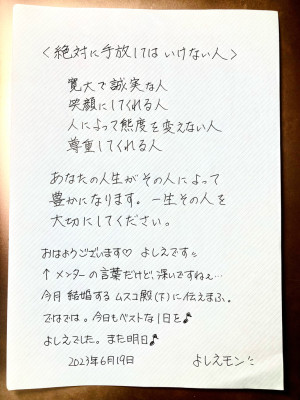 〈絶対に手放してはいけない人〉
寛大で誠実な人
笑顔にしてくれる人
人によって態度を変えない人
尊重してくれる人
あなたの人生がその人によって
豊かになります。一生その人を
大切にしてください。
おはようございます♡ よしえです
↑メンターの言葉だけど、深いですねぇ…
今月結婚するムスコ殿(下)に伝えまふ。
ではでは。今日もベストな1日を♪
よしえでした。また明日♪
2023年6月19日 よしえモン